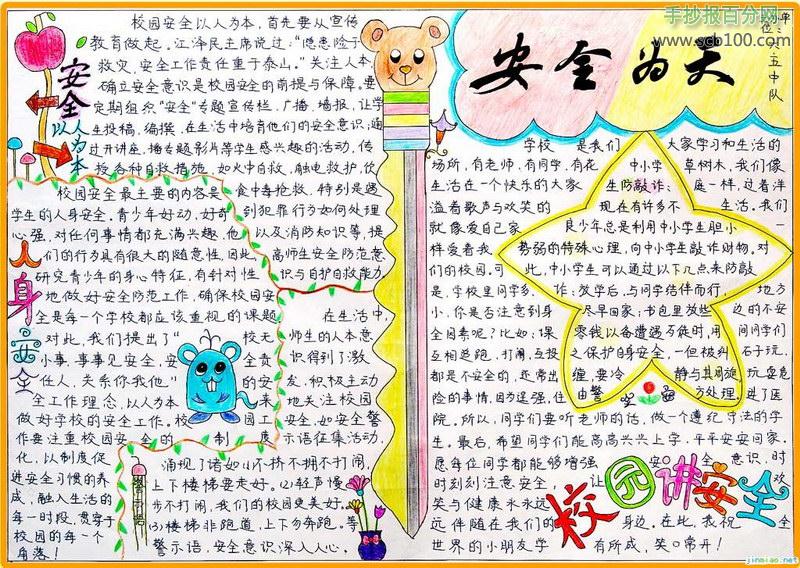 手抄报百分网
www.scb100.com
安全为天
安全
以人为本
校园安全以人为本,首先要从宣传
教育做起,江泽民主席说过:“隐患险于
救灾,安全工作责任重于泰山。”关注人本
确立安全意识是校园安全的前提与保障。要
定期组织“安全”专题宣传栏,广播,墙报,让学
生投稿,编撰,在生活中培育他们的安全意识,通
过开讲座,播专题影片等学生感兴趣的活动,传
授各种自救措施,如火中自救,触电救护,饮
食中毒抢救,特别是遇
到犯罪行为如何处理
以及消防知识等,提
高师生安全防范意
识与自护自救能力
人身安全
校园安全最主要的内容是
学生的人身安全,青少年好动,好奇
心强,对任何事情都充满兴趣,他
们的行为具有很大的随意性,因此,
研究青少年的身心特征,有针对性
地做好安全防范工作,确保校园安
全是每个学校都应该重视的课题
对此,我们提出了“校无
小事,事事见安全,安全责
任人,关系你我他。”的安
全工作理念,以人为本,来
做好学校的安全工作。校园工
作要注重校园安全的制度
化,以制度促
进安全习惯的养
成,融入生活的
每一时段,贯穿于
校园的每一个
角落!
在生活中,
师生的人本意
识得到了激
发,积极主动
地关注校园
安全,如安全警
示语征集活动,
警示语
涌现了诸如⑴不挤不拥不打闹,
上下楼梯要走好。⑵轻声慢
步不打闹,我们的校园更美好。
⑶楼梯非跑道,上下勿奔跑。等
警示语,安全意识深入人心。
学校是我们大家学习和生活的
场所,有老师,有同学,有花草树木,我们像
生活在一个快乐的大家庭一样,过着洋
溢着歌声与欢笑的生活。我们
就像爱自己家一
样爱看我
们的校园,可
是,学校里同学多,地方
小,你是否注意到身边的不安
全因素呢?比如:课间同学们
互相追跑、打闹、互投石子玩,
都是不安全的,还常出
险的事情,因为逞强,住进了医
院。所以,同学们要听老师的话,做一个遵纪守法的学
生。最后,希望同学们能高高兴兴上学,平平安安回家。
愿每位同学都能够增强安全意识,时
时刻刻注意安全,让欢
笑与健康永远永
远伴随在我们的身边,在此,我祝全
世界的小朋友学有所成,笑口常开!
中小学
生防敲诈:
现在有许多不
良少年总是利用中小学生胆小
势弱的特殊心理,向中小学生敲诈财物。对
此,中小学生可以通过以下几点来防敲
诈:放学后,与同学结伴而行,
尽早回家;书包里放些
零钱以备遭遇歹徒时,用
之保护自身安全,一但被纠
缠,要冷静与其周旋
由警方处理。
校园讲安全
jinmiao.net